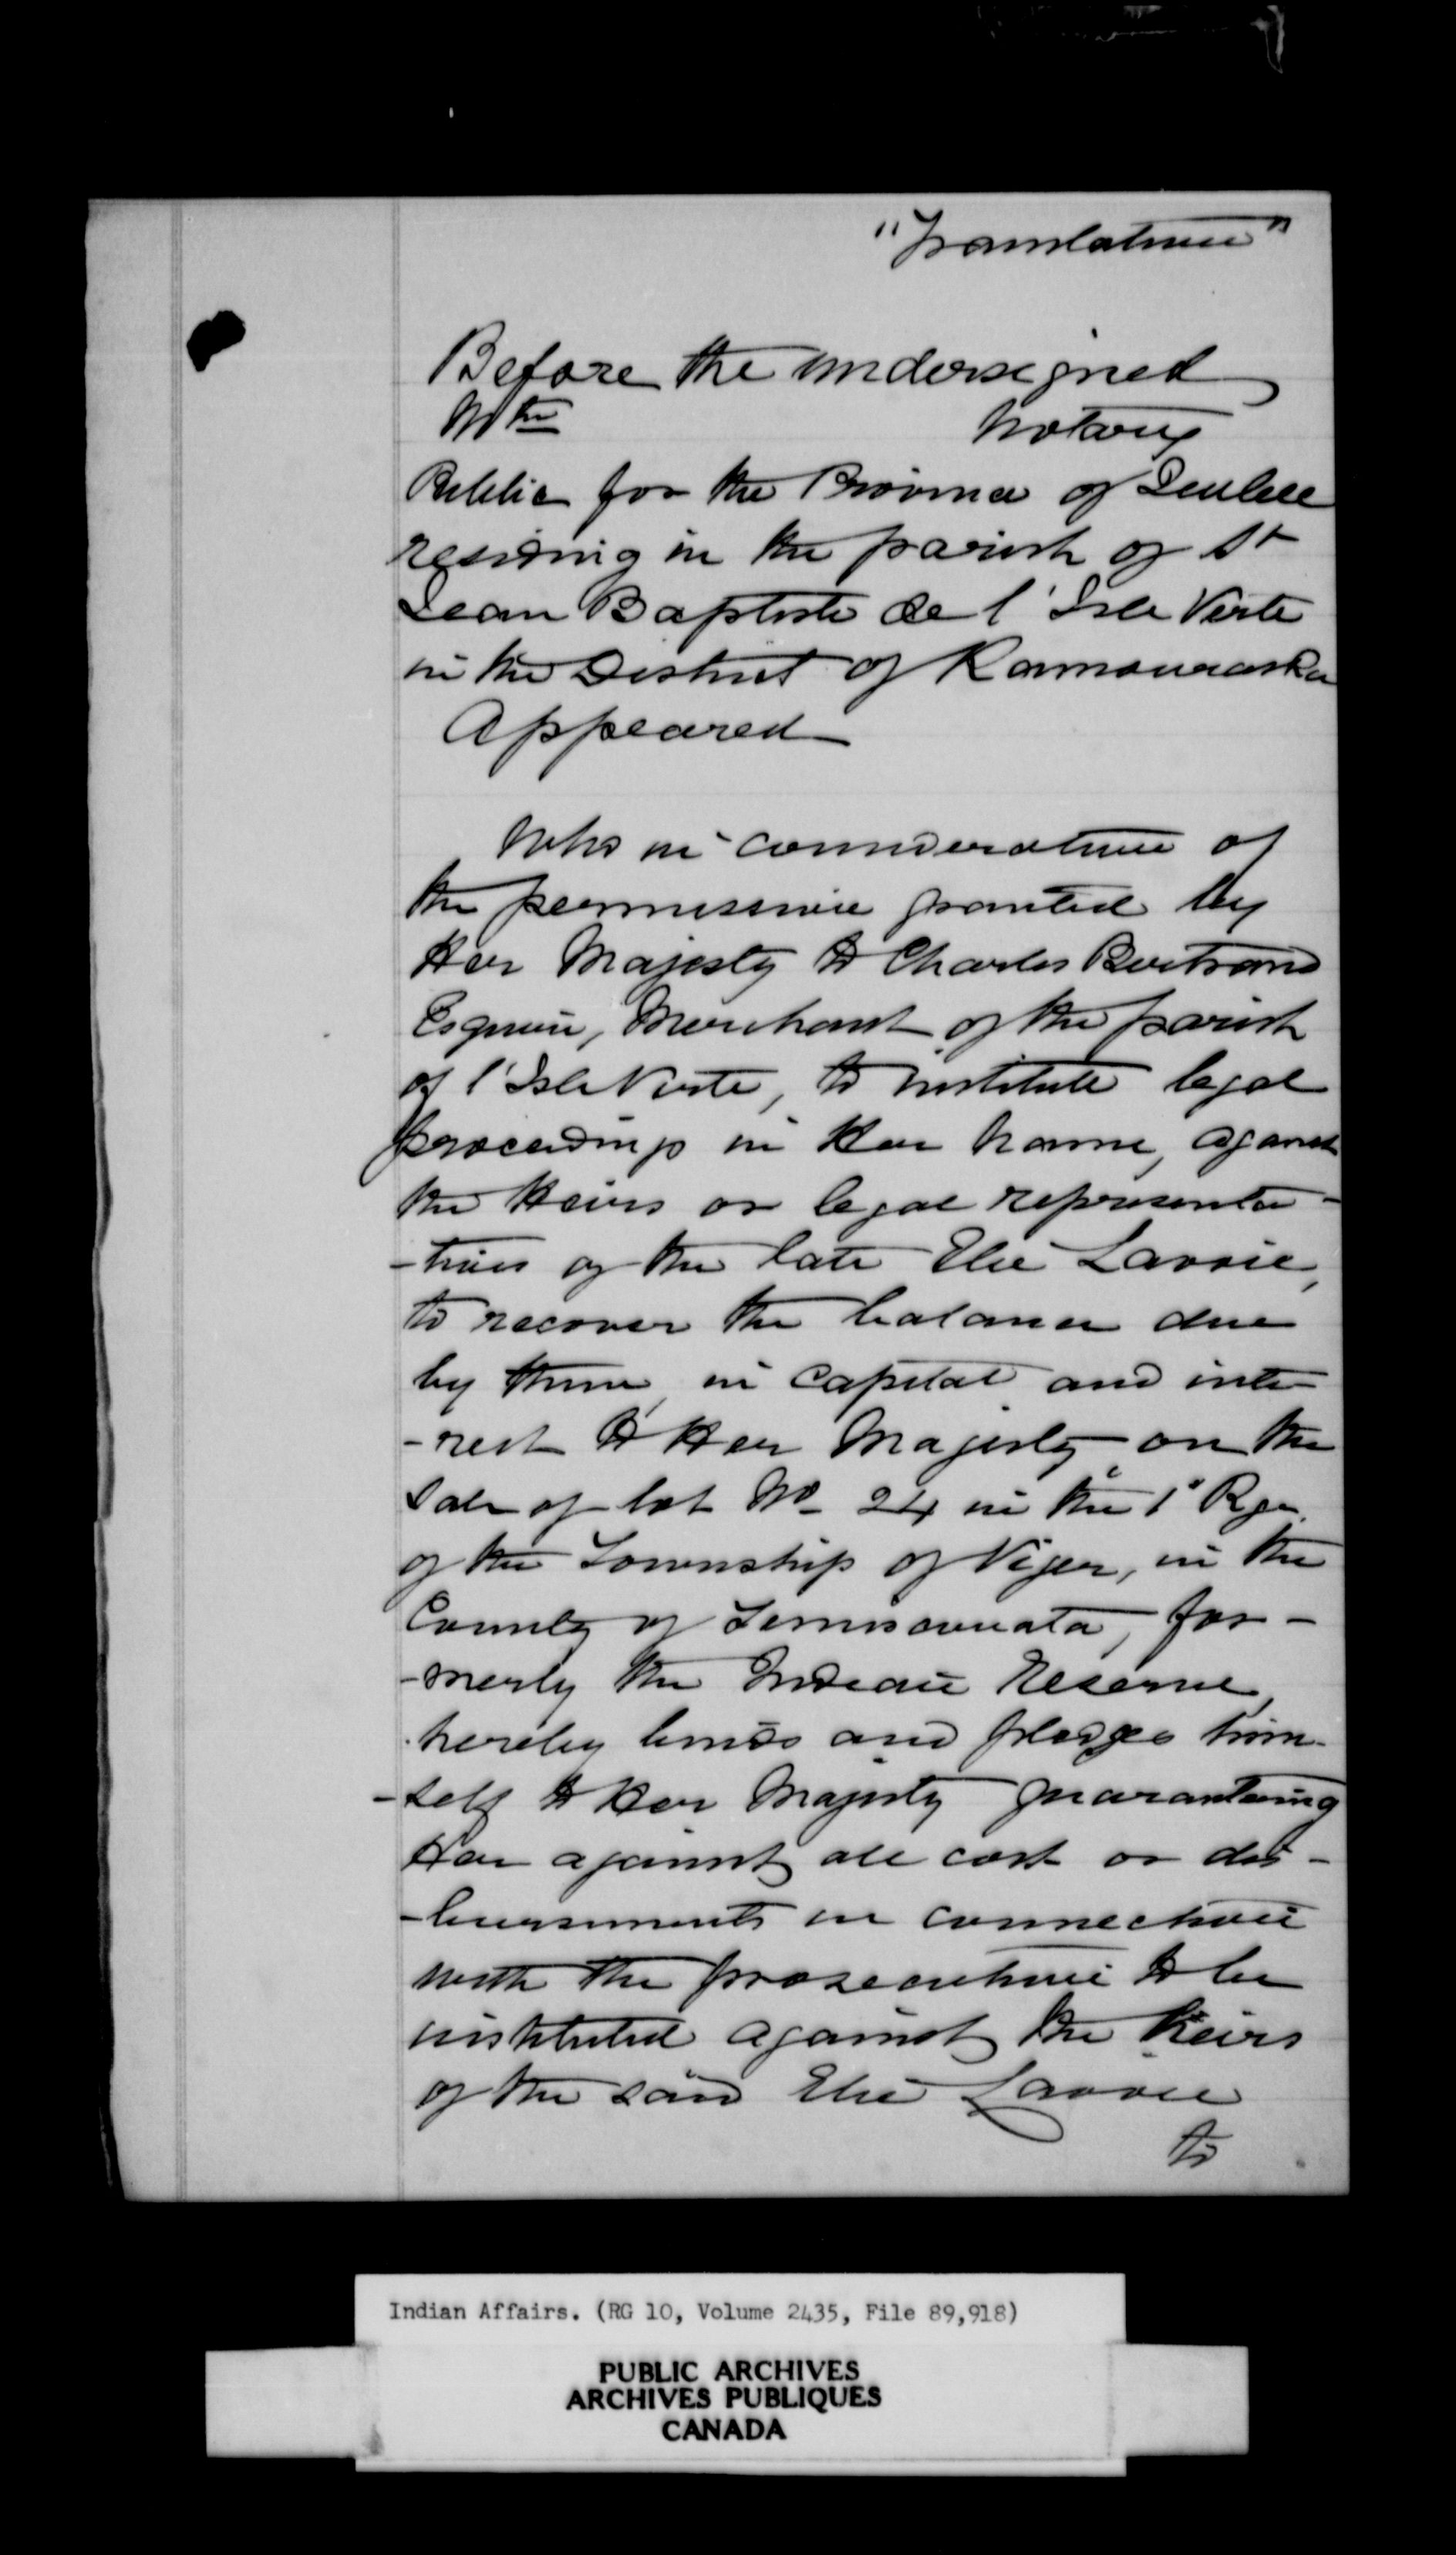 "Translation"
Before the undersigned
Mtre Notary
Public for the Province of Quebec
residing in the parish of St
Jean Baptiste de l'Isle Verte
in the District of Kamouraska
Appeared
Who in consideration of
the permission granted by
Her Majesty to Charles Bertrand
Esquire, Merchant of the parish
of l'Isle Verte, to institute legal
proceedings in Her name, against
the Heirs or legal representa-
-tives of the late Elie Lavoie,
to recover the balance due
by them, in capital and inte-
-rest to Her Majesty on the
Sale of lot No 24 in the 1° Rge.
of the Township of Viger, in the
County of Temiscouata, for-
-merly the Indian Reserve,
hereby binds and pledges him-
-self to Her Majesty guaranteeing
Her against all cost or dis-
-bursements in connection
with the prosecution to be
instituted against the heirs
of the said Elie Lavoie
to
Indian Affairs. (RG 10, Volume 2435, File 89,918)
PUBLIC ARCHIVES
ARCHIVES PUBLIQUES
CANADA